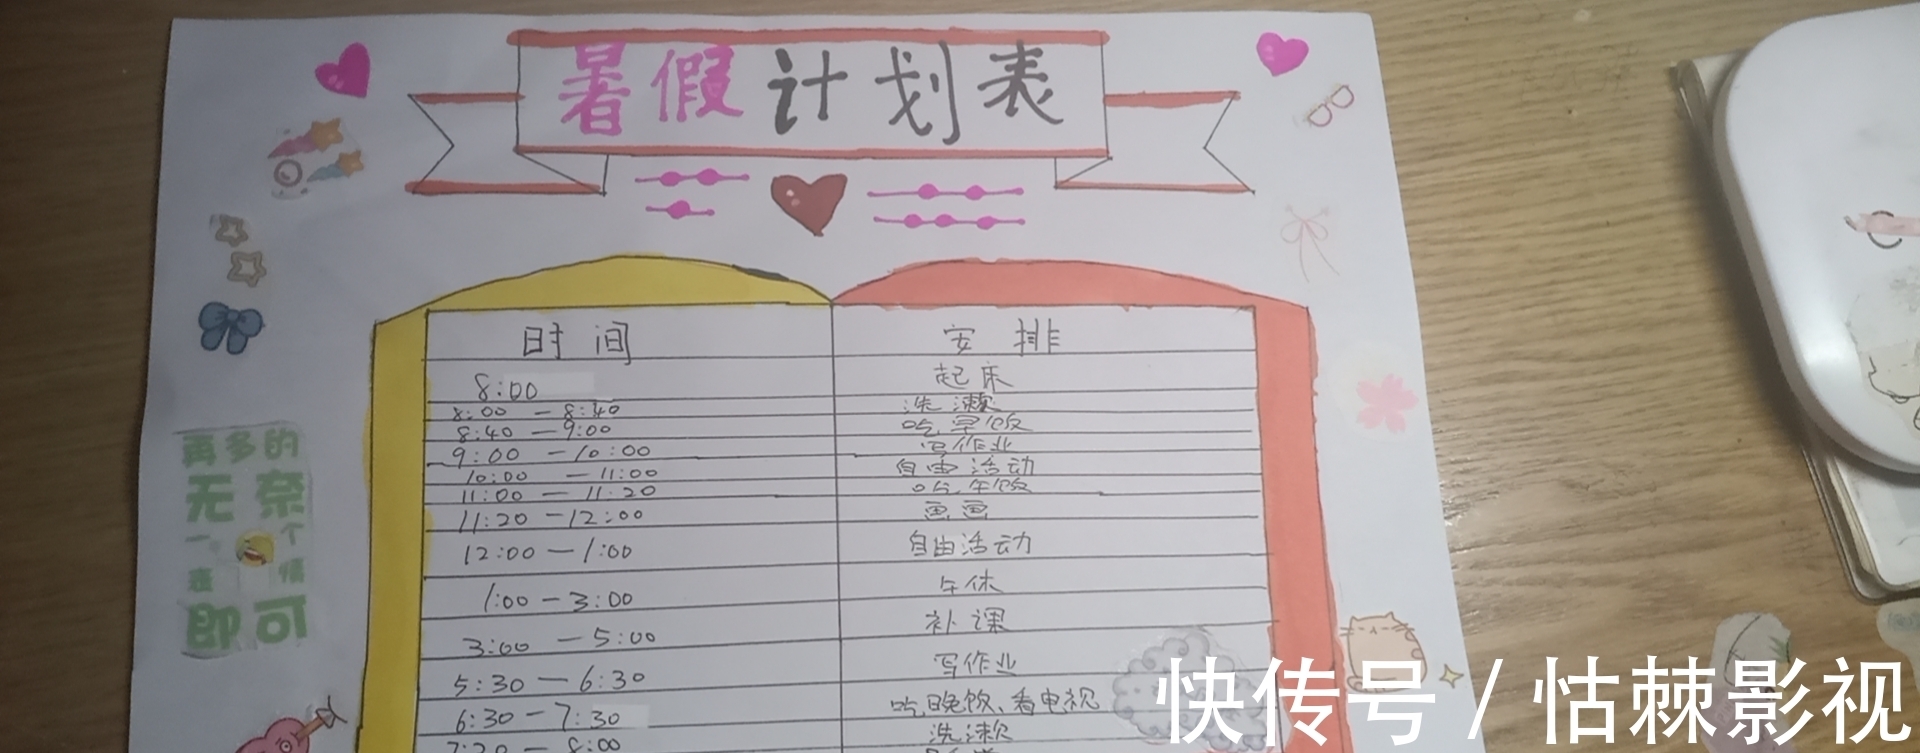 暑假计划表
时间 安排
8:00 起床
8:00 — 8:40 洗漱
8:40 — 9:00 吃早饭
9:00 — 10:00 写作业
10:00 — 11:00 自由活动
11:00 — 11:20 吃午饭
11:20 — 12:00 画画
12:00 — 1:00 自由活动
1:00 — 3:00 午休
3:00 — 5:00 补课
5:30 — 6:30 写作业
6:30 — 7:30 吃晚饭、看电视
— 8:00 洗漱
再多的
无奈
一个
表情
即可
快传号 / 怙棘影视